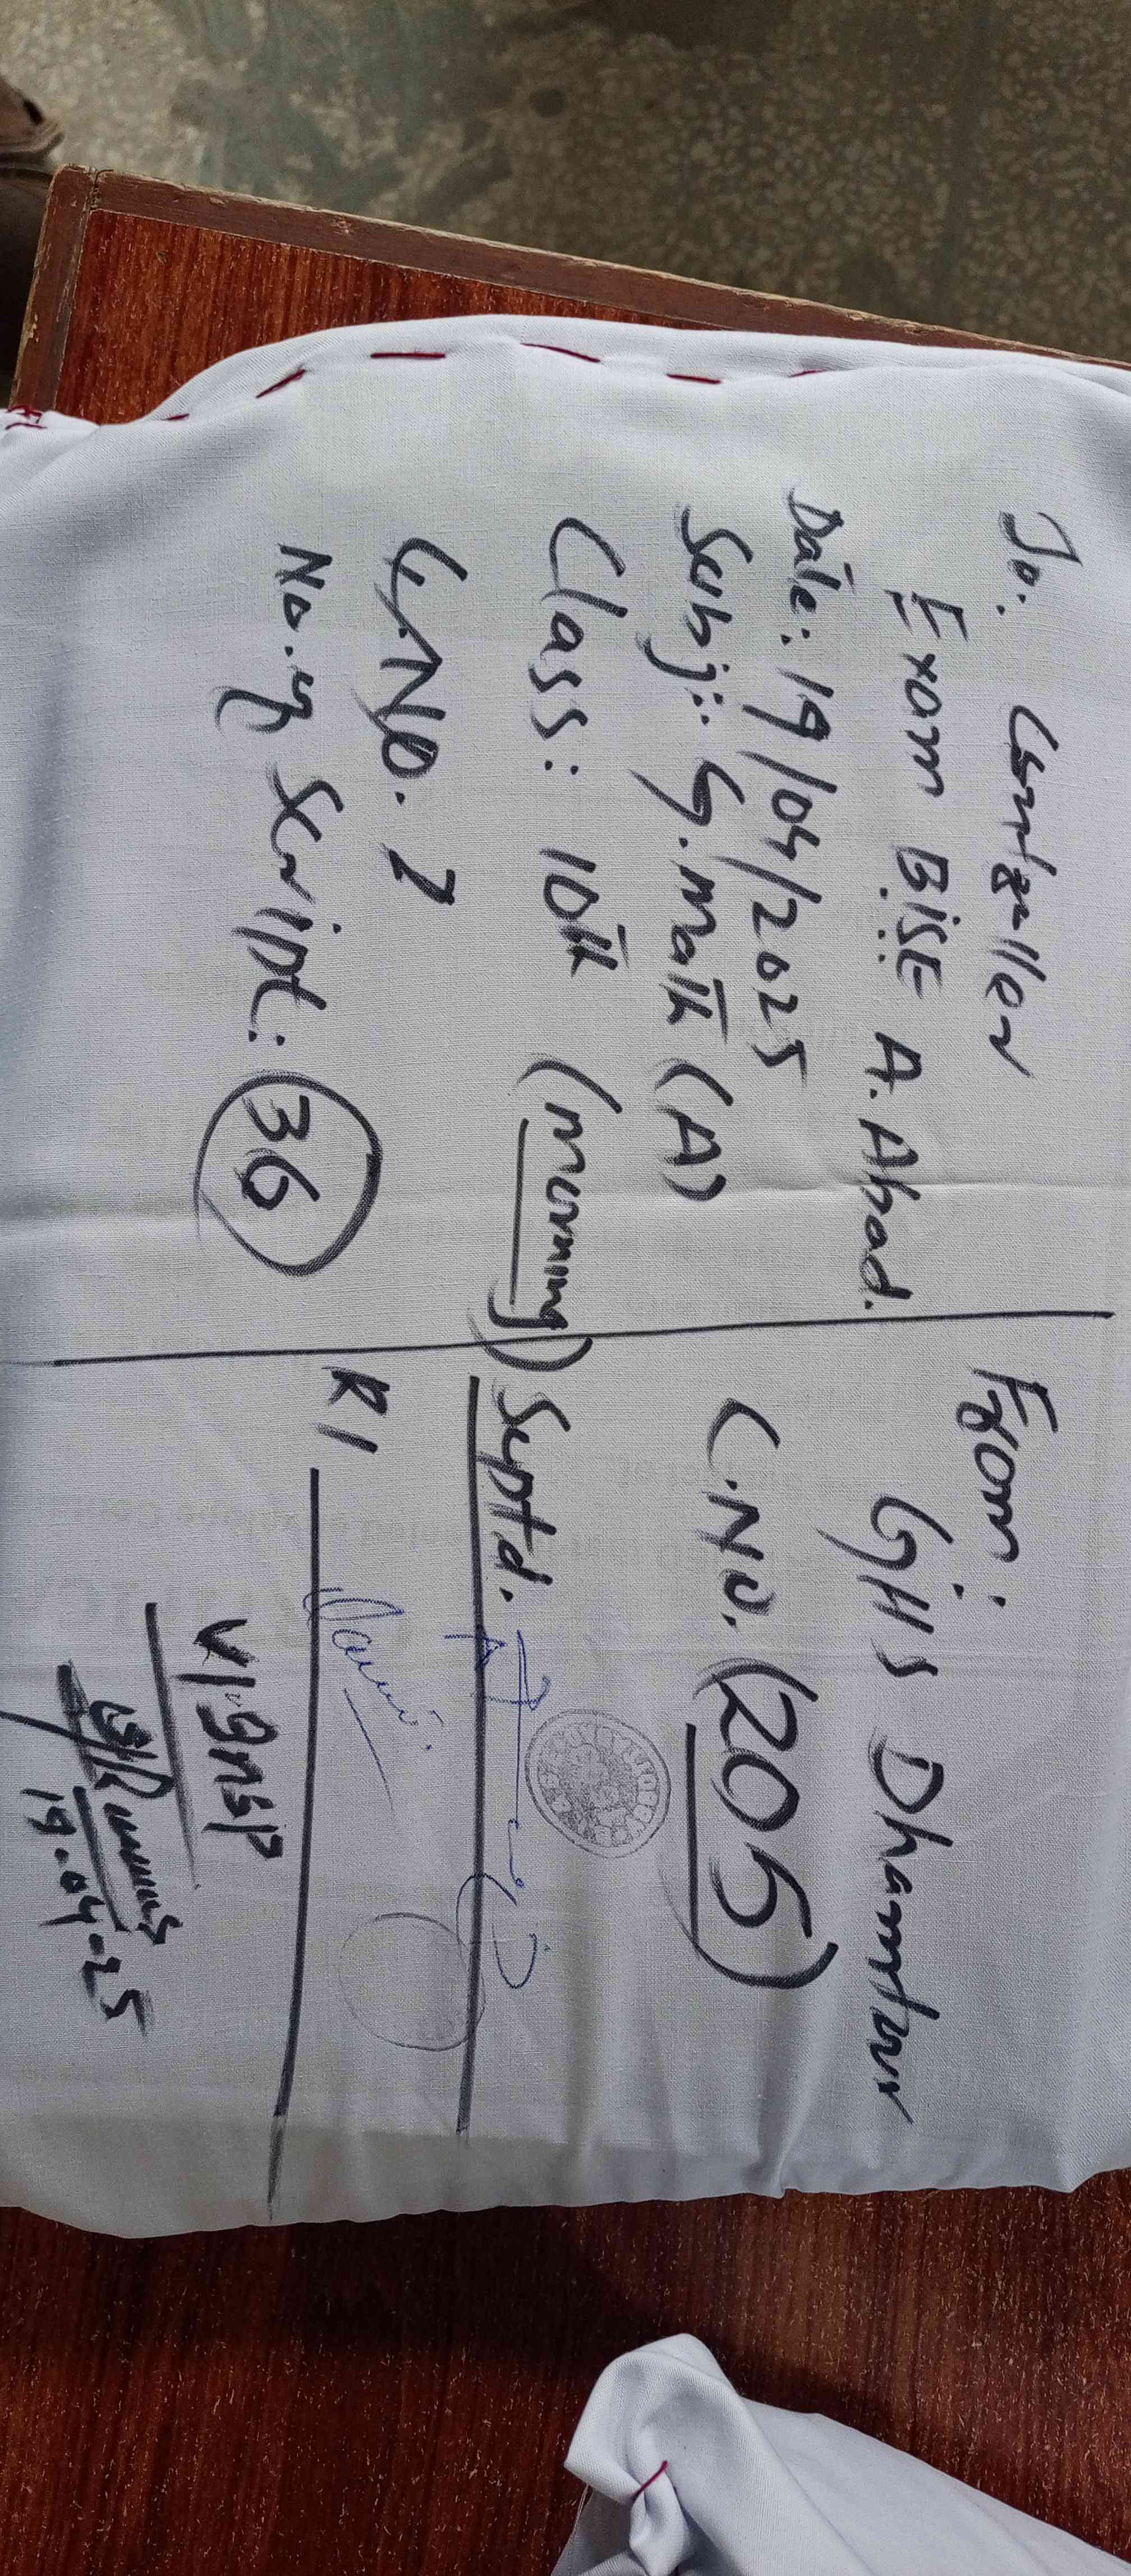 To: Controller
Exam BISE A.Abad.
Date: 19/04/2025
Subj: G.Math (A)
Class: 10th (morning)
G.NO. 2
No. of Script: 36
From: GHS Dhamtour
C.NO. (205)
Suptd.
RI
19-04-25